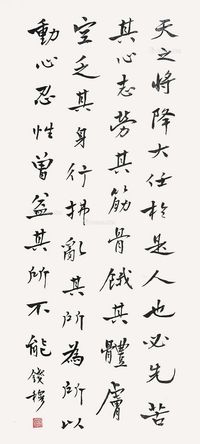 天之將降大任於是人也必先苦
其心志勞其筋骨餓其體膚
空乏其身行拂亂其所為所以
動心忍性曾益其所不能 錢穆